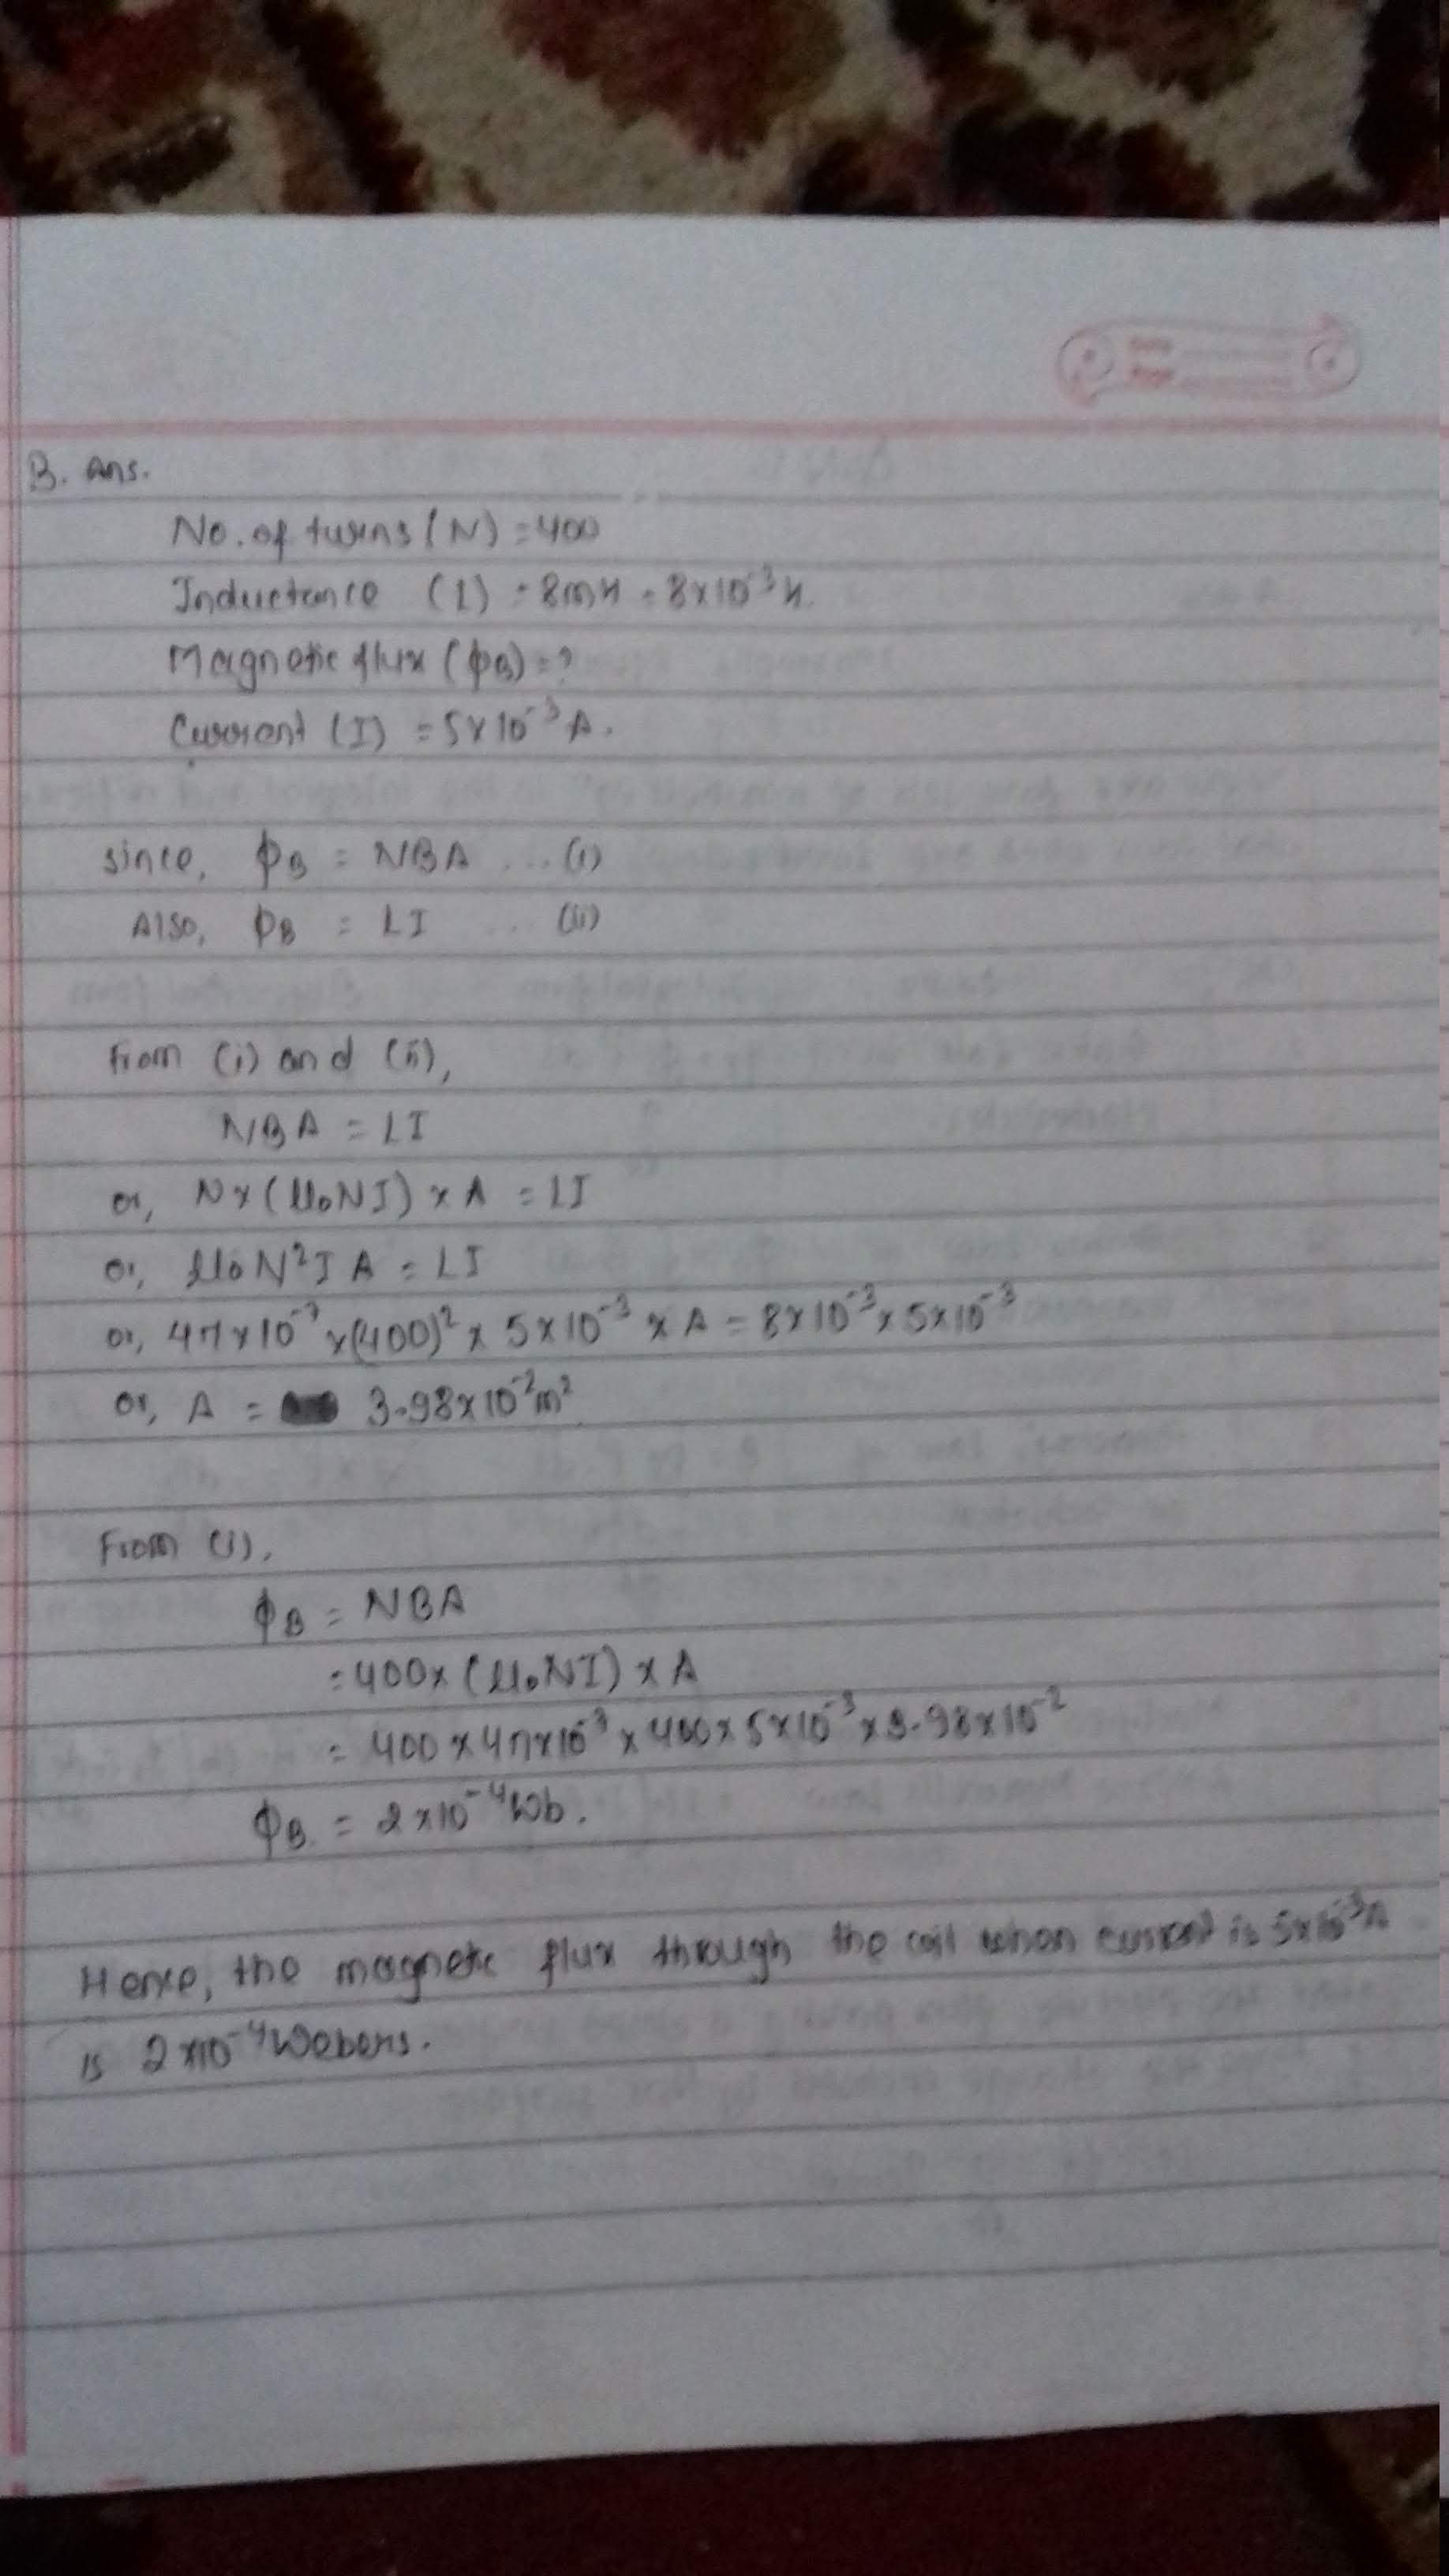 Date
Page
B. Ans.
No. of turns (N) = 400
Inductance (L) = 8mH = 8×10⁻³H.
Magnetic flux (ϕB) = ?
Current (I) = 5×10⁻³A.
since, ϕB = NBA ... (i)
Also, ϕB = LI ... (ii)
From (i) and (ii),
NBA = LI
or, N×(μ₀NI)×A = LI
or, μ₀N²IA = LI
or, 4π×10⁻⁷×(400)²×5×10⁻³×A = 8×10⁻³×5×10⁻³
or, A = 3.98×10⁻²m²
From (i),
ϕB = NBA
= 400×(μ₀NI)×A
= 400×4π×10⁻⁷×400×5×10⁻³×3.98×10⁻²
ϕB = 2×10⁻⁴Wb.
Hence, the magnetic flux through the coil when current is 5×10⁻³A
is 2×10⁻⁴Webers.